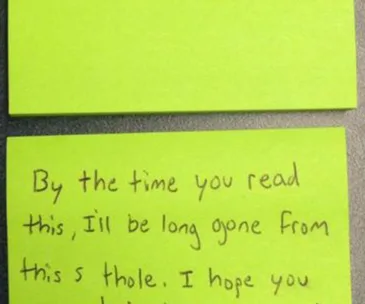 By the time you read
this, I'll be long gone from
this s thole. I hope you